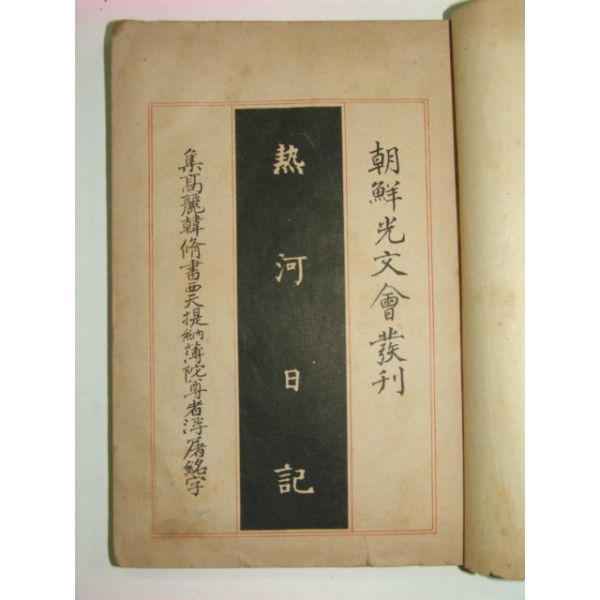 朝鮮光文會發刊
熱河日記
集高麗韓脩書西天提納薄陀尊者浮屠銘字